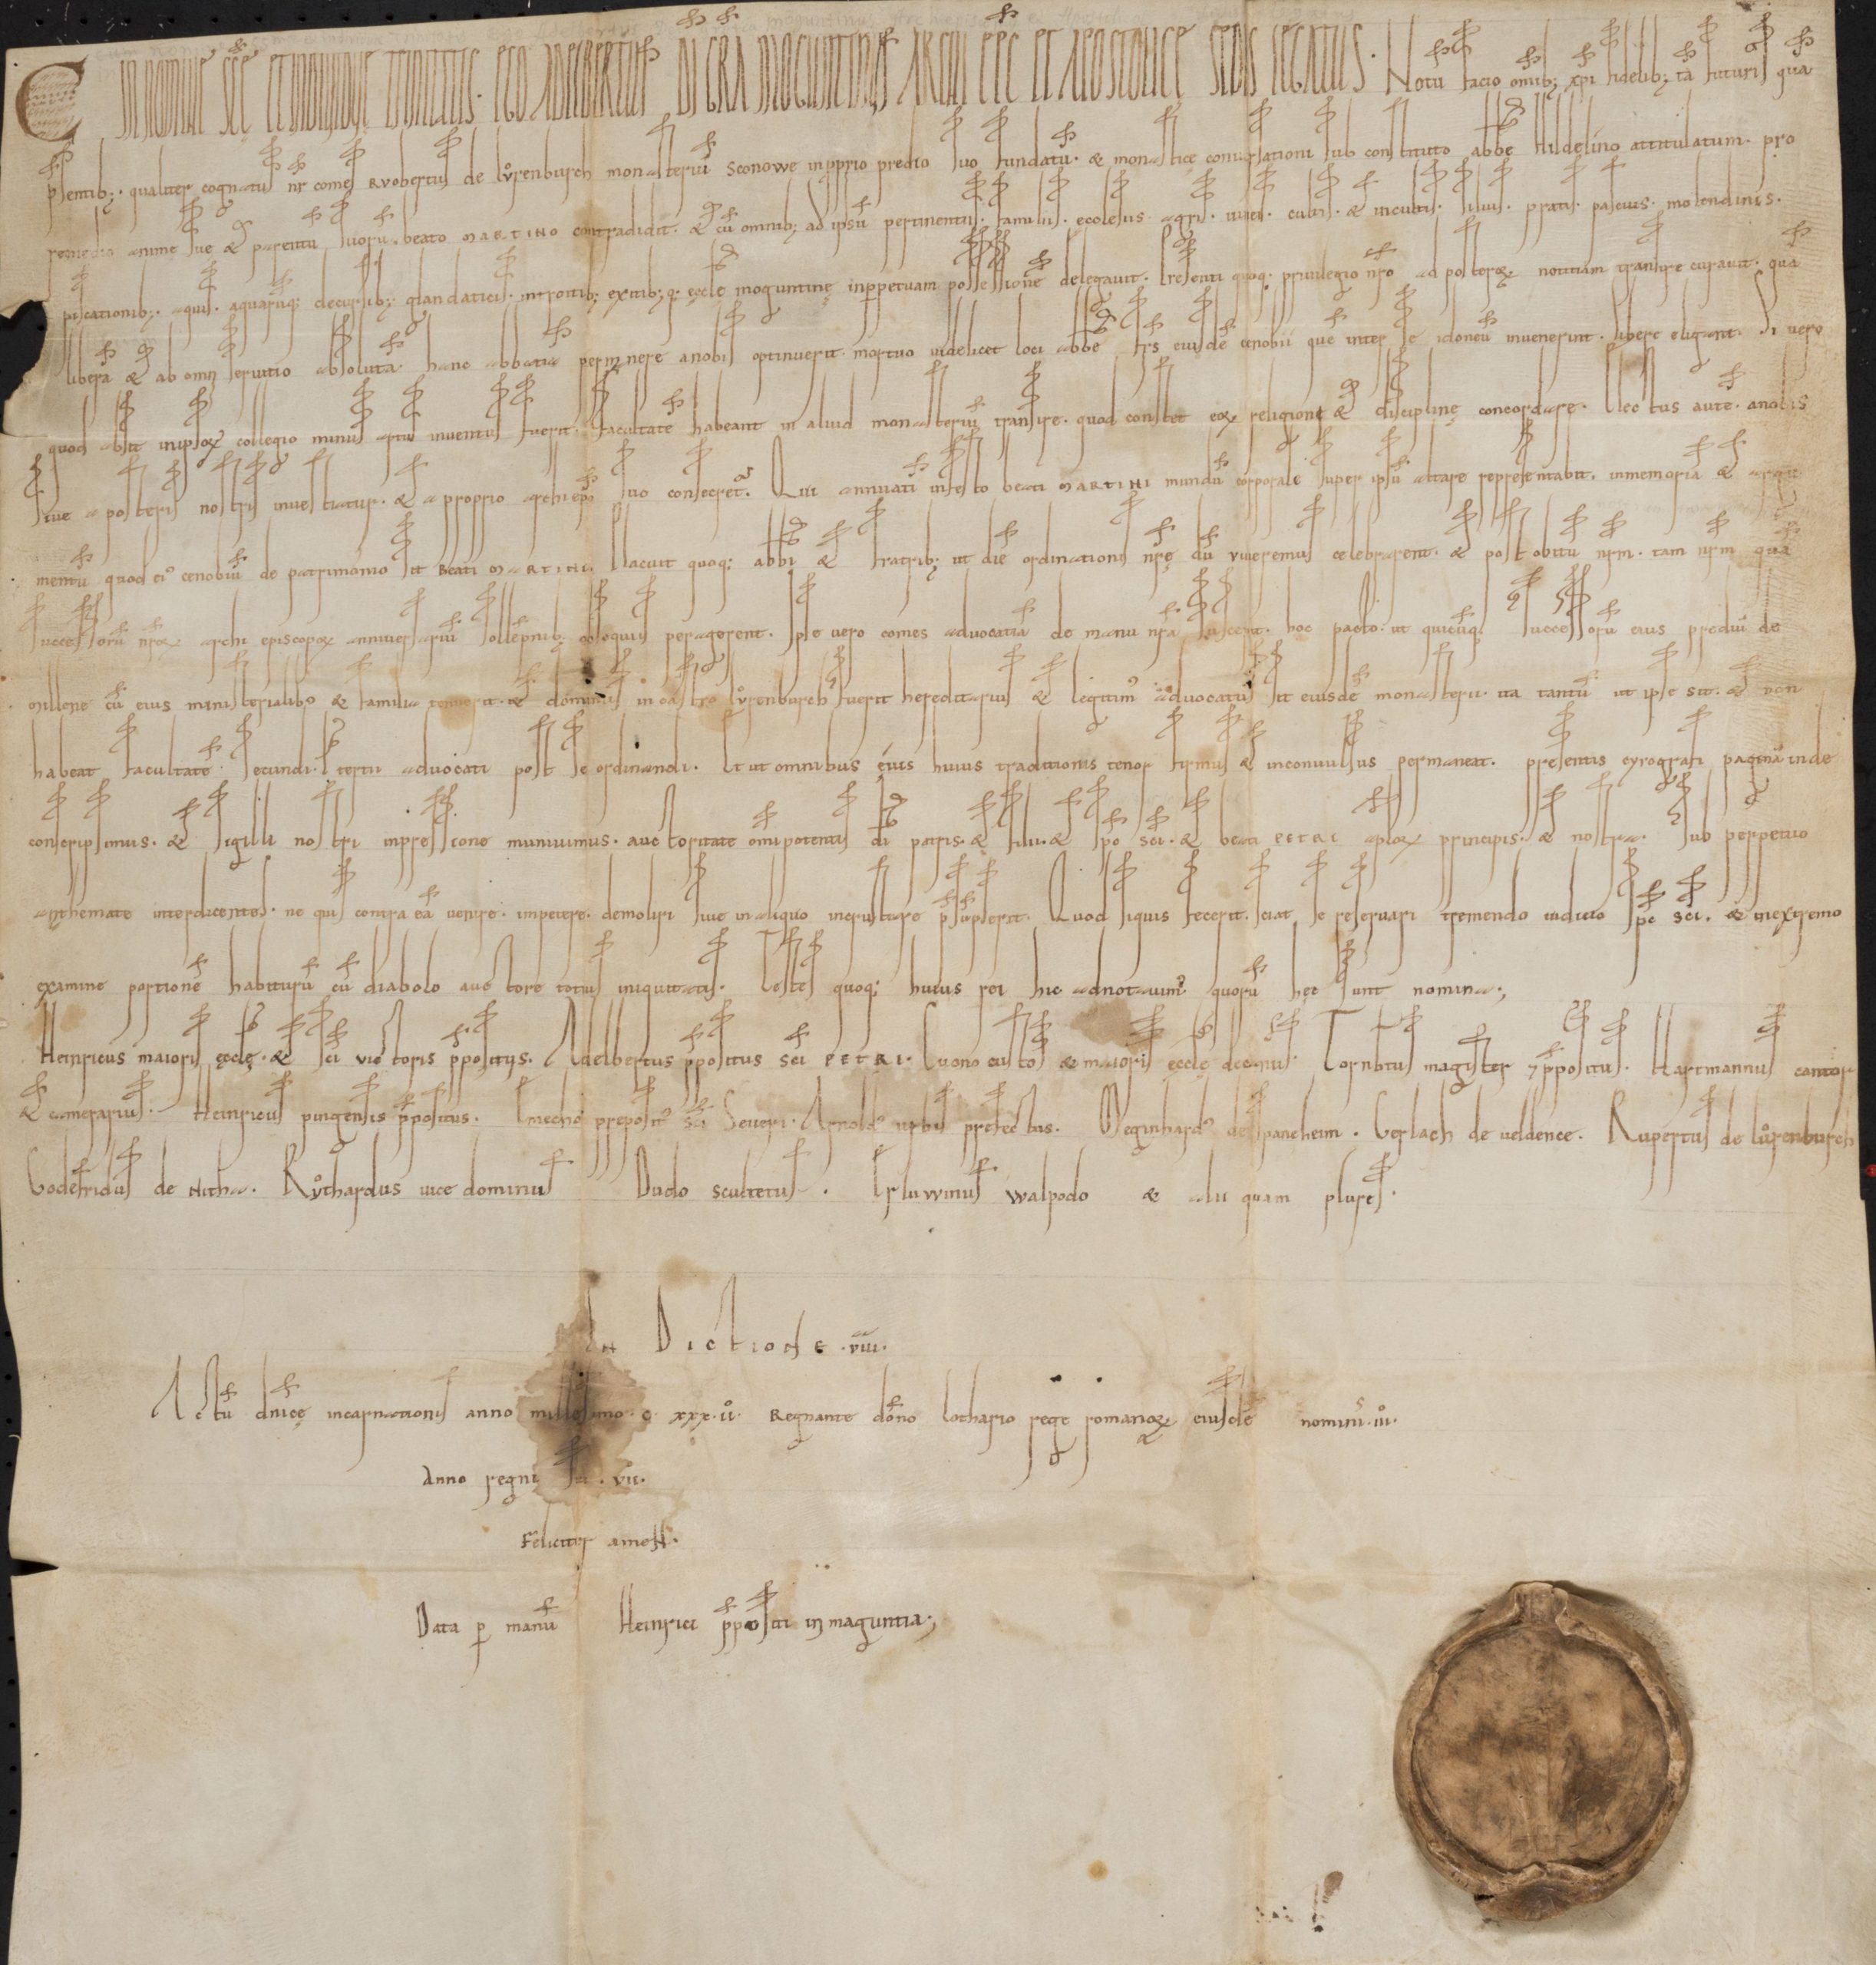 C IN NOMINE SCĘ ET INDIVIDUĘ TRINITATIS. EGO ADELBERTUS DI GRA MOGUNTINUS ARCHIEPC ET APOSTOLICĘ SEDIS LEGATUS. Notu facio omib; xpi fidelib; tā futuris quā
psentib;. qualiter cognatus nr comes Ruobertus de lůrenburch monasteriū Sconowe in pprio predio suo fundatū. & monasticę conuersationi sub constituto abbe Hildelino attitulatum. pro
remedio animę suę & parentū suorū beato MARTINO contradidit. & cū omnib; ad ipsū pertinentiis. familiis. ecclesiis. agris. uineis. cultis. & incultis. siluis. pratis. pascuis. molendinis.
piscationib;. aquis. aquarūq; decursib;. glandaticis. introitib; exitib;q; ęcclę moguntinę in ppetuam possessionē delegauit. Presenti quoq. priuilegio nro ad posteroꝝ notitiam transire curauit. quā
liberā & ab omni seruitio absolutā hanc abbatiā permanere a nobis optinuerit. mortuo uidelicet loci abbe frs eiusdē cenobii quē inter se idoneū inuenerint. libere eligant. Si uero
quod absit in ipsoꝝ collegio minus aptus inuentus fuerit. facultatē habeant in aliud monasteriū transire. quod constet eoꝝ religioni & disciplinę concordare. Electus autē. a nobis
siue a posteris nostris inuestiatur. & a proprio archiepo suo consecret̄. Qui annuati in festo beati MARTINI mundū corporale super ipsū altare representabit. in memoriā & argu
mentū quod ei⁹ cenobiū de patrimonio sit BEATI MARTINI. Placuit quoq; abbi & fratrib; ut diē ordinationis nrę dū uiueremus celebrarent. & post obitū nrm. tam nrm quā
successorū nroꝝ archi episcopoꝝ anniuersariū sollepnib; obsequiis peragerent. Ipse uero comes aduocatiā de manu nra suscepit. hoc pacto. ut quicūq; successorū eius prediū de
Millene cū eius ministerialib⁹ & familia tenuerit. & dominus in castro lůrenburch fuerit hereditarius & legitim⁹ aduocatus sit eiusdē monasterii. ita tantū ut ipse sit. & non
habeat facultatē secundi. l tertii aduocati post se ordinandi. Et ut omnibus ęuis huius traditionis tenor firmus & inconuulsus permaneat. presentis cyrografi paginā inde
conscripsimus. & sigilli nostri inpressione muniuimus. auctoritate omipotentis di patris. & filii. & spc sci. & beati PETRI aploꝝ principis. & nostra. sub perpetuo
anathemate interdicentes. ne quis contra eā uenire. impetere. demoliri siue in aliquo infrustare psūpserit. Quod siquis fecerit. sciat se reseruari tremendo iudicio spc sci. & in extremo
examine portionē habiturū cū diabolo auctore totius iniquitatis. Testes quoq; huius rei hic adnotauim⁹ quorū hec sunt nomina;
Heinricus maioris ęcclę. & sci victoris ppositus. Adelbertus ppositus sci PETRI. Cuono custos & maioris ęcclę decanus. Gornotus magister & ppositus. Hartmannus cantor
& camerarius. Heinricus pingensis ppositus. Emecho preposit⁹ sci Seueri. Arnold⁹ urbis prefectus. Meginhard⁹ de spancheim. Gerlach de ueldence. Rupertus de lůrenburch
Godefridus de Nitha. Růthardus uice dominus Dudo scultetus. Erluwinus walpodo & alii quam plures.
In Dictione .viii.
Actū dnicę incarnationis anno millesimo. c. xxx. ii. Regnante dono lothario rege romanoꝝ eiusdē nominis .iii.
Anno regni sui. vii.
Feliciter ameN.
Data p manū Heinrici ppositi in maguntia;